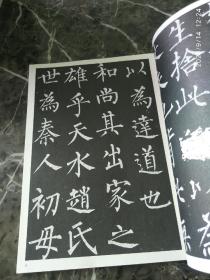 以為達道也
和尚其出家之
雄乎天水趙氏
世為秦人初母
生捨此